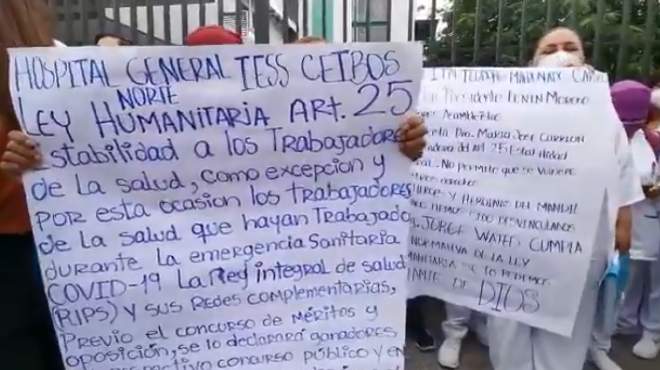 HOSPITAL GENERAL IESS CEIBOS
NORTE
LEY HUMANITARIA ART. 25
Estabilidad a los Trabajadores
de la salud, como excepcion y
por esta ocasion los trabajadores
de la Salud que hayan Trabajado
durante la emergencia Sanitaria
COVID-19 La Red integral de salud
(RIPS) y sus Redes complementarias,
Previo el concurso de Méritos y
oposición, se lo declarará ganadores
concurso público y en
Presidente Lenin Moreno
Dra. Maria Jose Carrion
del Art 25 Estabilidad
No permite que se vulnere
derecho
y Heroinas del Mandil
700 Desvinculados
JORGE WATED CUMPLA
NORMATIVA DE LA LEY
DIOS